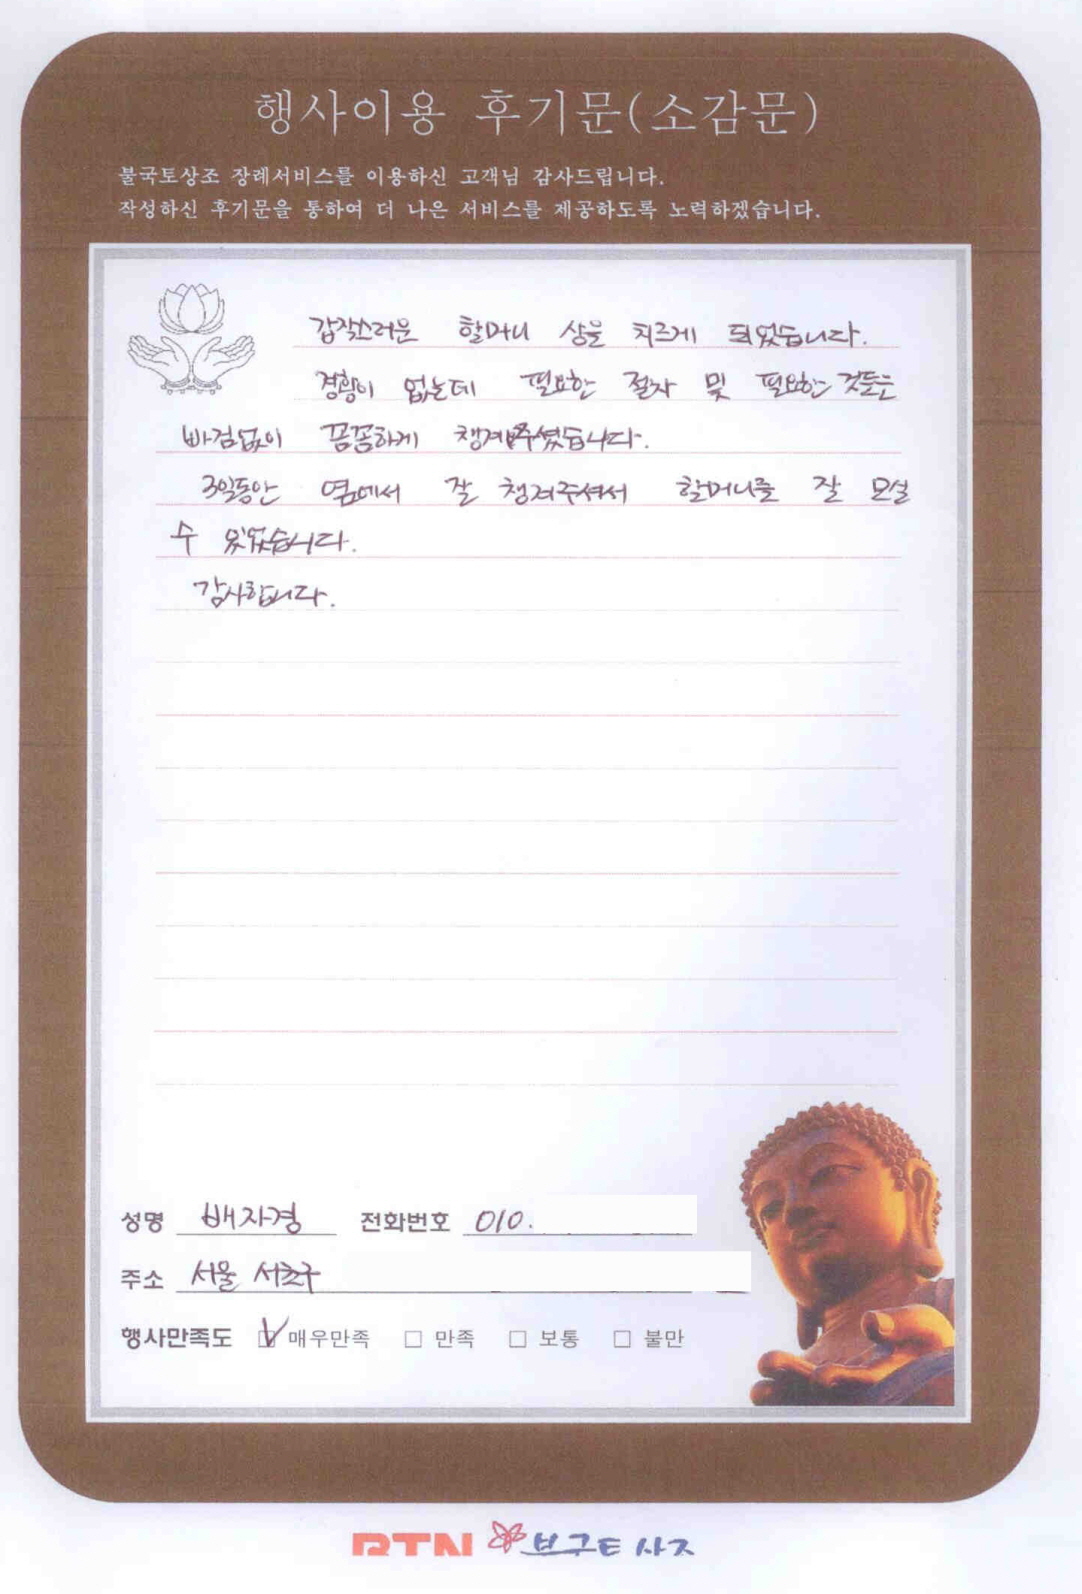 행사이용 후기문(소감문)
불국토상조 장례서비스를 이용하신 고객님 감사드립니다.
작성하신 후기문을 통하여 더 나은 서비스를 제공하도록 노력하겠습니다.
갑작스러운 할머니 상을 치르게 되었습니다.
경황이 없는데 필요한 절차 및 필요한 것들은
빠짐없이 꼼꼼하게 챙겨주셨습니다.
3일동안 옆에서 잘 챙겨주셔서 할머니를 잘 모실
수 있었습니다.
감사합니다.
성명 배자경 전화번호 010.
주소 서울 서초구
행사만족도 매우만족 만족 보통 불만
BTN